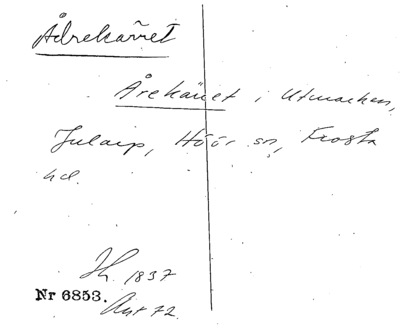 Ådrekärret
Årekärret i Utmarken,
Jularp, Höör sn, Frosta
hd.
H. 1837
Nr 6853.
Akt 72